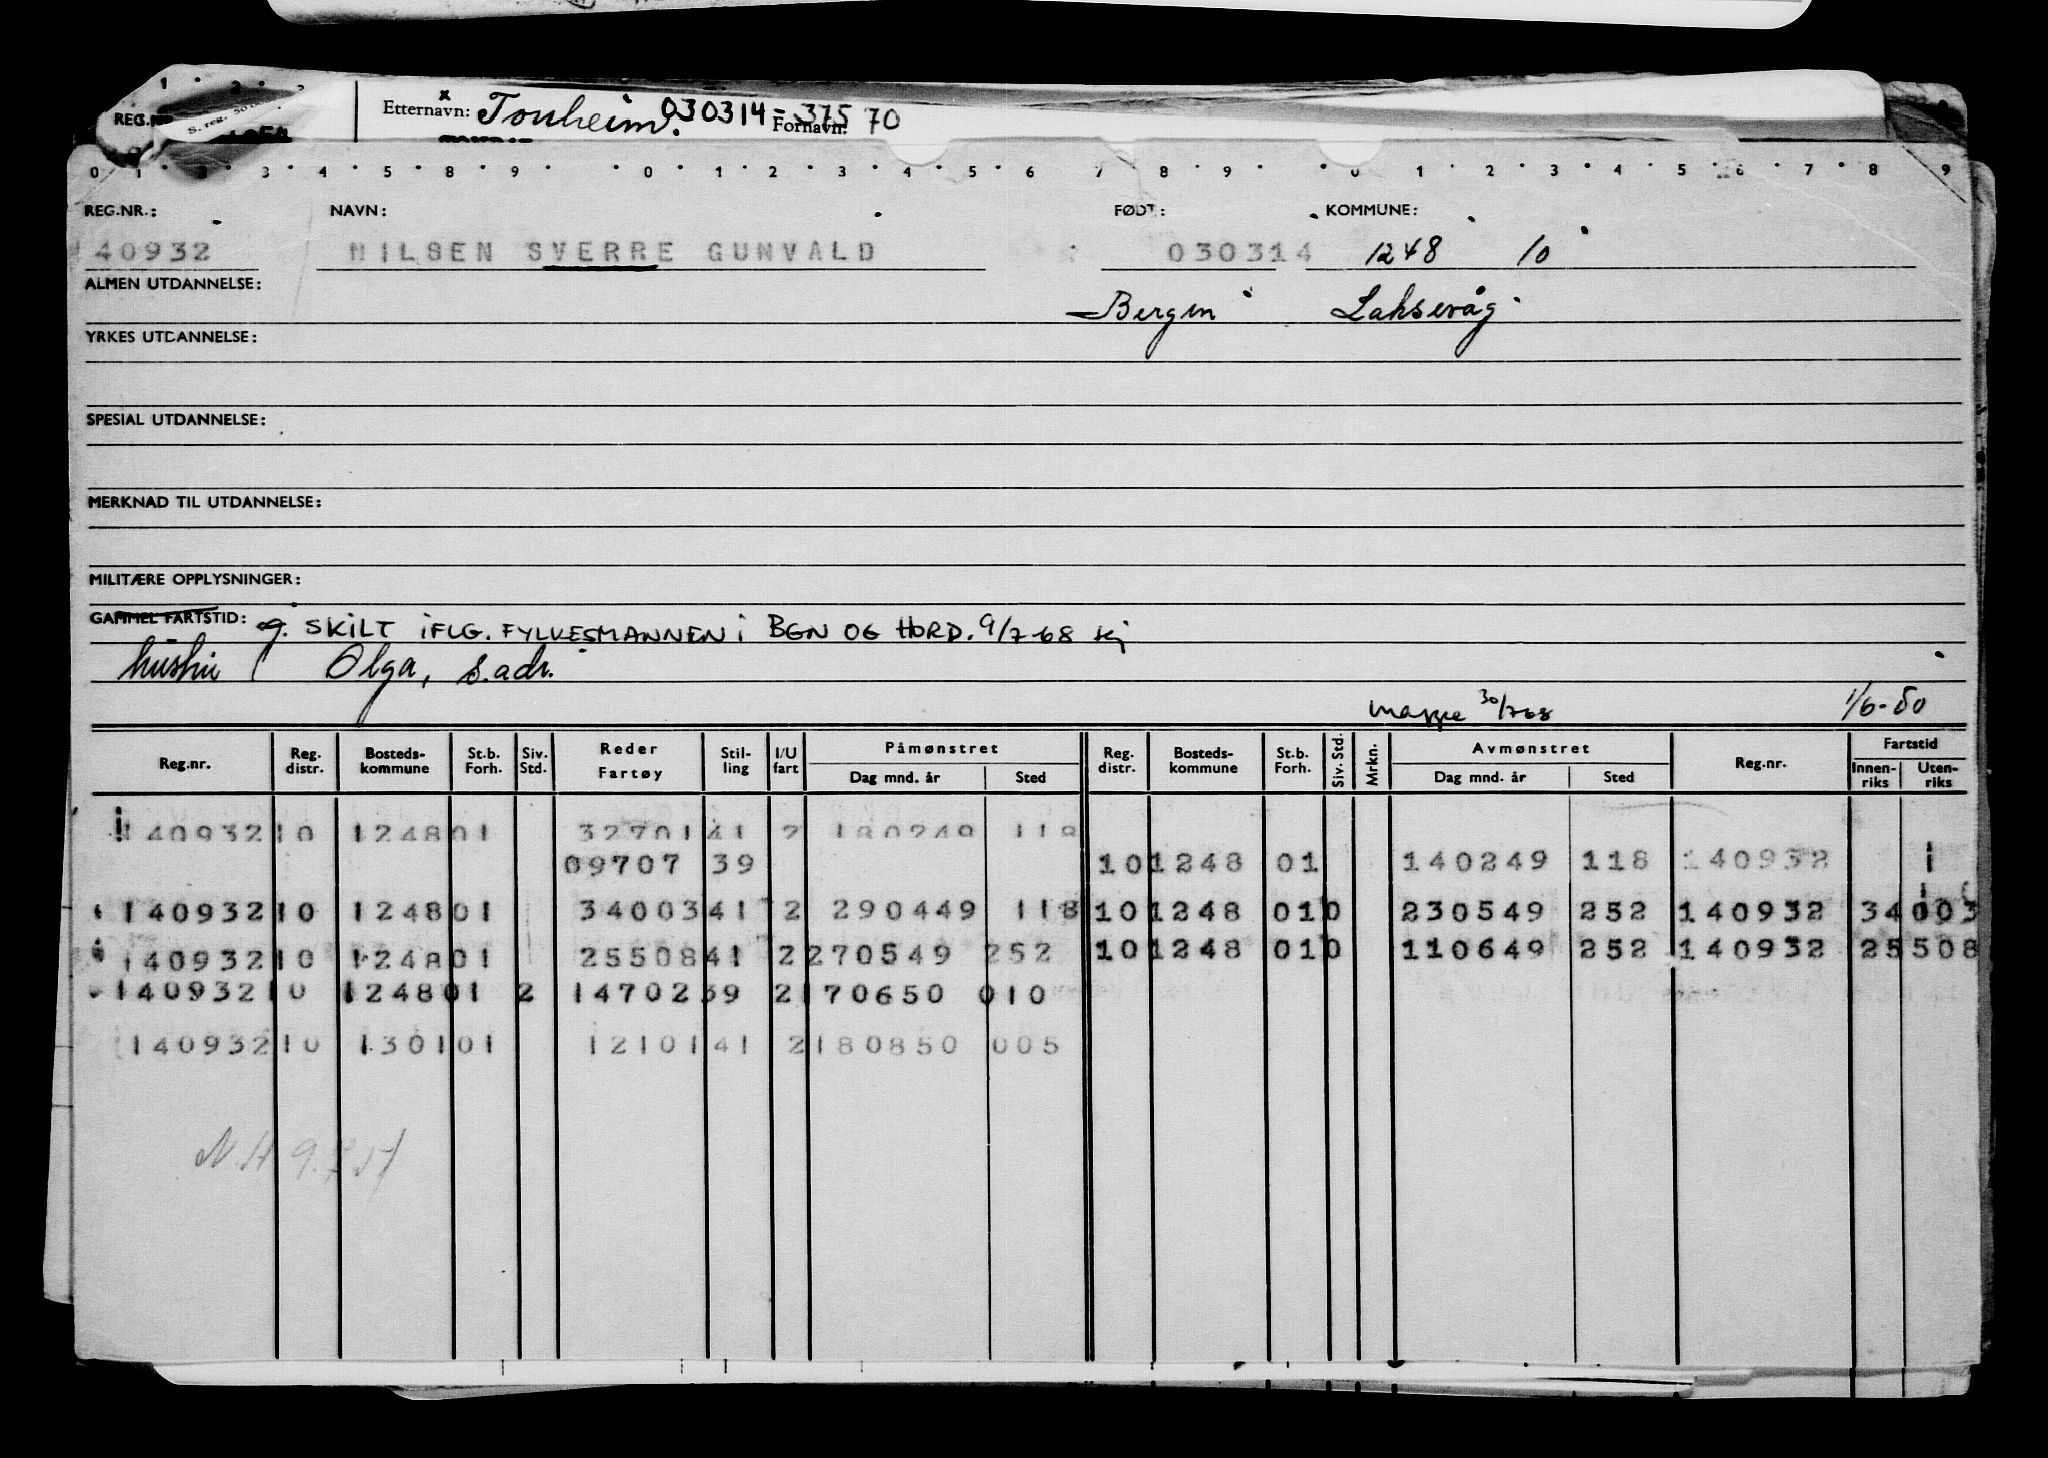 Etternavn: x Tonheim. 030314-37570 Fornavn:
REG.NR.: NAVN: FØDT: KOMMUNE:
40932 NILSEN SVERRE GUNVALD 030314 1248 10
ALMEN UTDANNELSE: Bergen Laksevåg
YRKES UTDANNELSE:
SPESIAL UTDANNELSE:
MERKNAD TIL UTDANNELSE:
MILITÆRE OPPLYSNINGER:
GAMMEL FARTSTID: g. SKILT IFLG. FYLKESMANNEN i BGN OG HORD. 9/7-68
hustru Olga, s.adr.
Mappe 30/768 1/6-50
Reg.nr. Reg. distr. Bosteds- kommune St.b. Forh. Siv. Std. Reder Fartøy Stil- ling I/U fart Påmønstret Dag mnd. år Sted Reg. distr. Bosteds- kommune St.b. Forh. Siv. Std. Mrkn. Avmønstret Dag mnd. år Sted Reg.nr. Fartstid Innen- riks Uten- riks
140932 10 1248 01 32701 41 2 180249 118
09707 39 10 1248 01 140249 118 140932
140932 10 1248 01 34003 41 2 290449 118 10 1248 01 0 230549 252 140932 34003
140932 10 1248 01 25508 41 2 270549 252 10 1248 01 0 110649 252 140932 25508
140932 10 1248 01 2 14702 39 2 170650 010
140932 10 1301 01 12101 41 2 180850 005